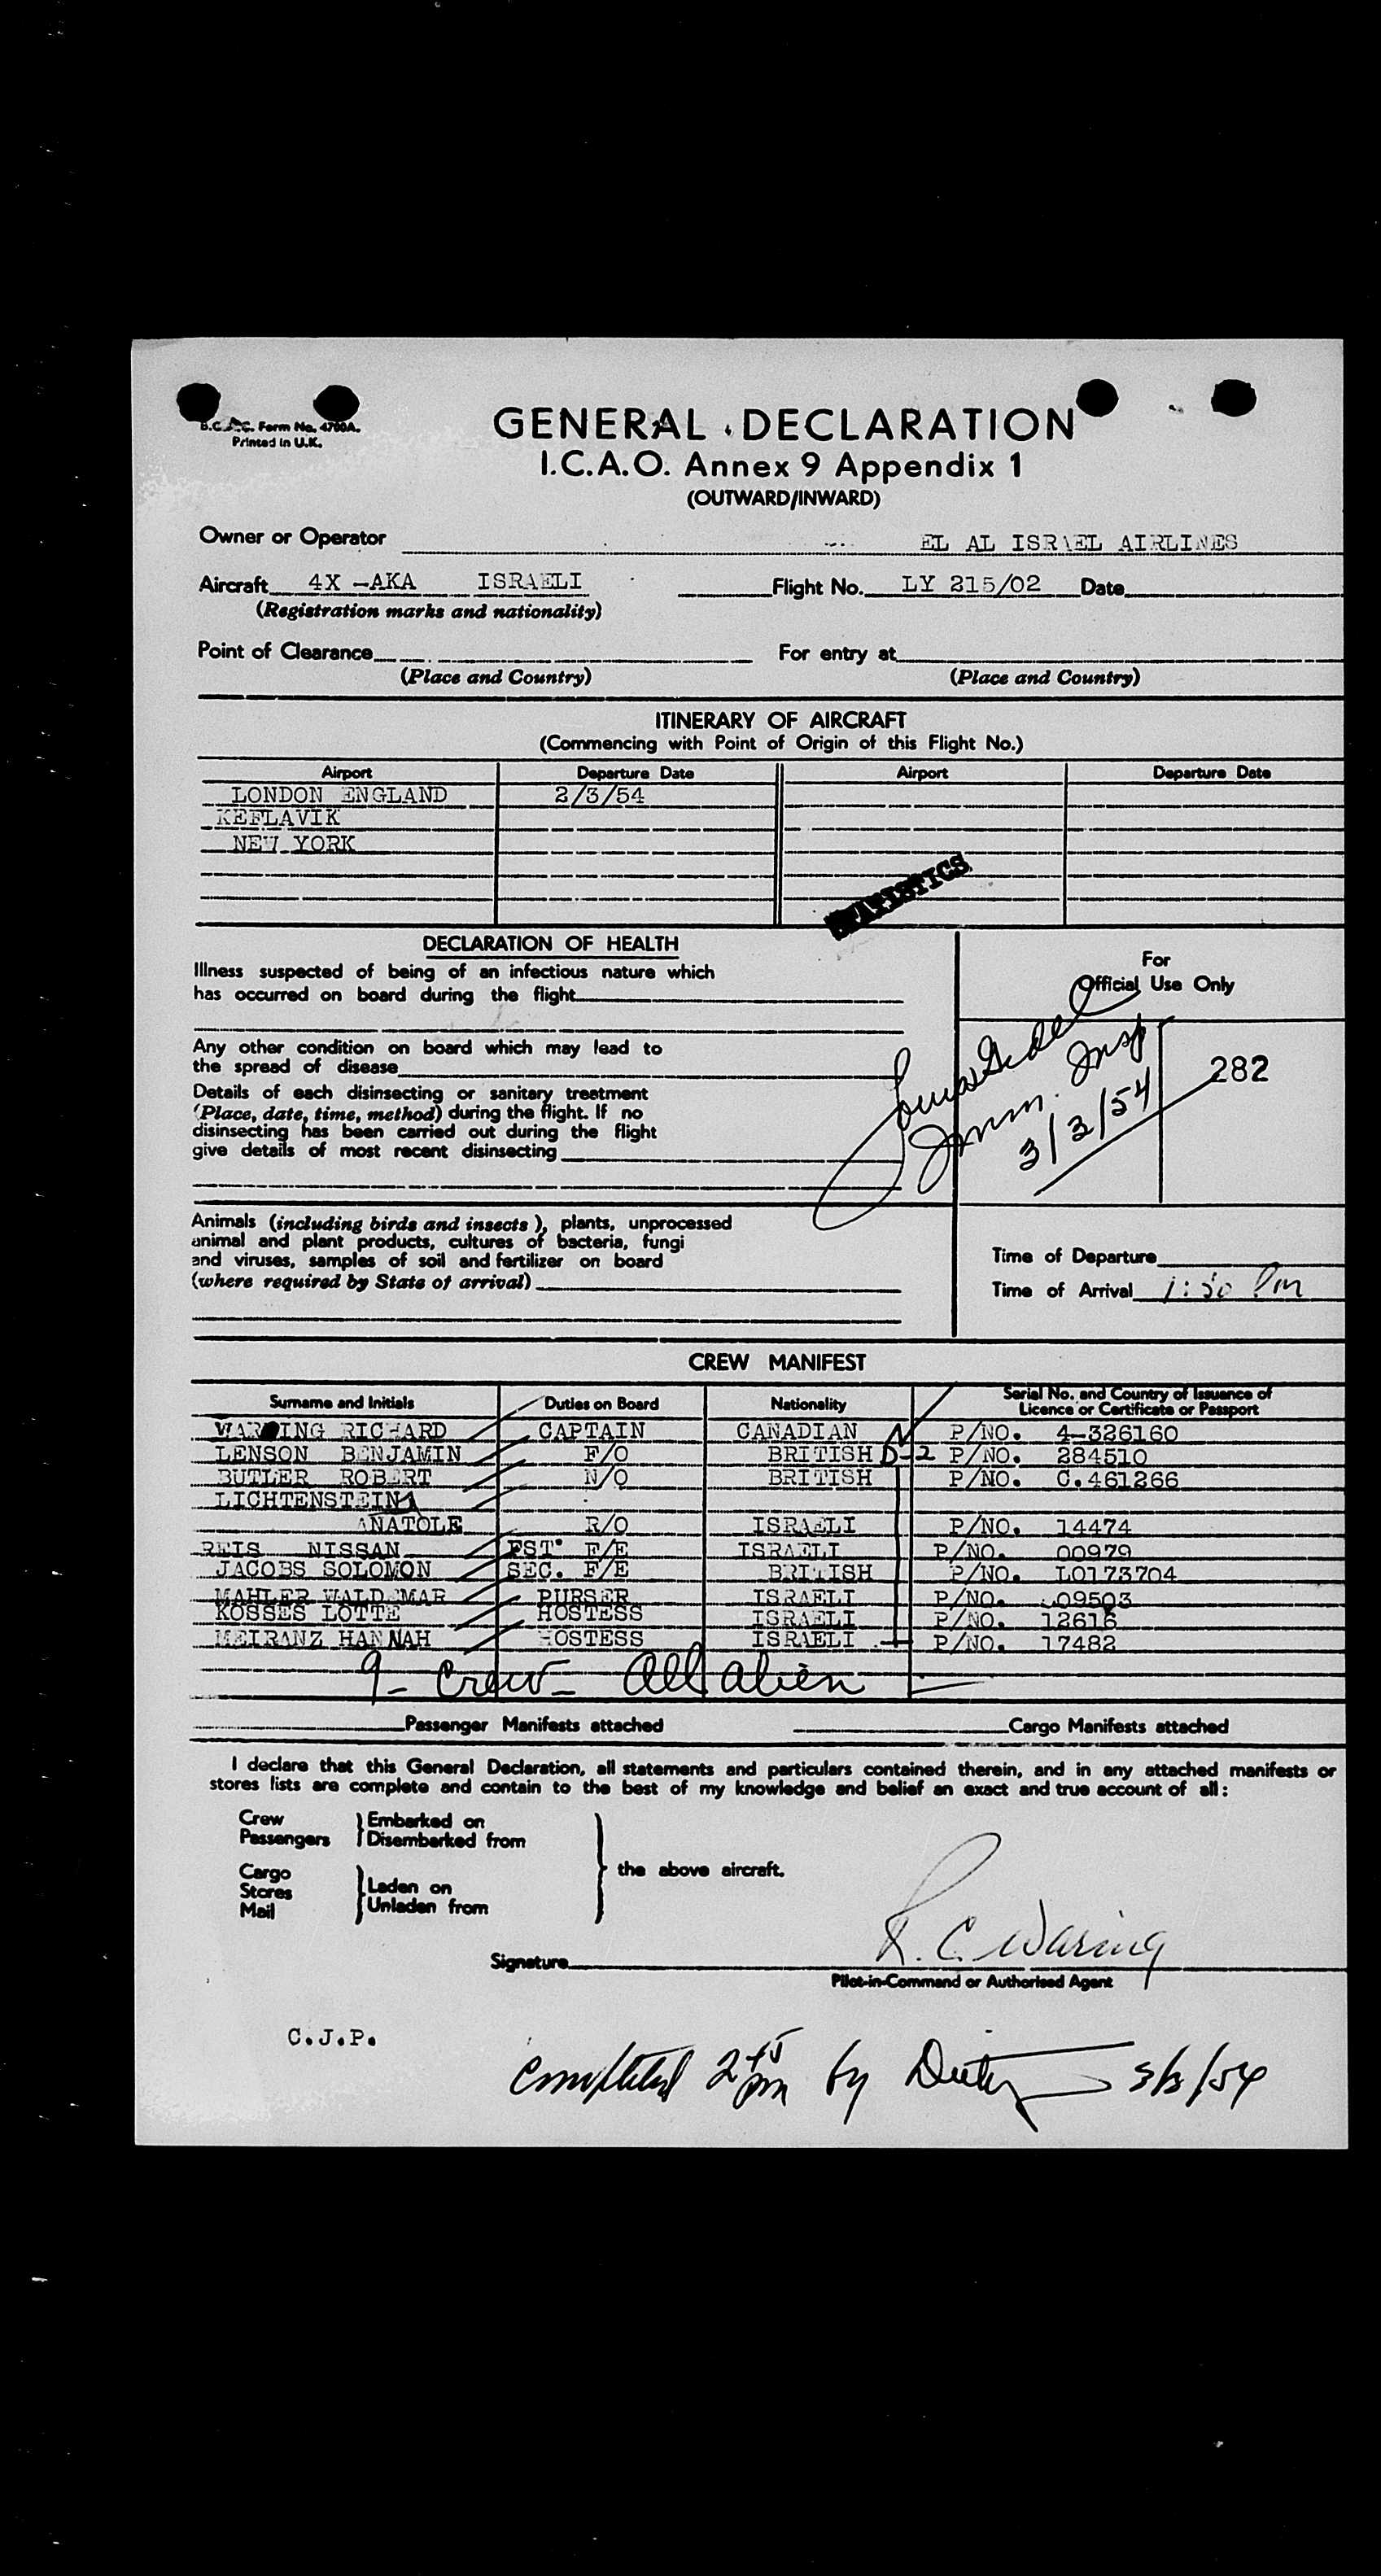 B.C.A.C. Form No. 4700A.
Printed in U.K.
GENERAL DECLARATION
I.C.A.O. Annex 9 Appendix 1
(OUTWARD/INWARD)
Owner or Operator EL AL ISRAEL AIRLINES
Aircraft 4X -AKA ISRAELI Flight No. LY 215/02 Date
(Registration marks and nationality)
Point of Clearance For entry at
(Place and Country) (Place and Country)
ITINERARY OF AIRCRAFT
(Commencing with Point of Origin of this Flight No.)
Airport Departure Date Airport Departure Date
LONDON ENGLAND 2/3/54
KEFLAVIK
NEW YORK
STATISTICS
DECLARATION OF HEALTH
Illness suspected of being of an infectious nature which
has occurred on board during the flight
Any other condition on board which may lead to
the spread of disease
Details of each disinsecting or sanitary treatment
(Place, date, time, method) during the flight. If no
disinsecting has been carried out during the flight
give details of most recent disinsecting
For
Official Use Only
Imm. Insp
3/3/54
282
Animals (including birds and insects), plants, unprocessed
animal and plant products, cultures of bacteria, fungi
and viruses, samples of soil and fertilizer on board
(where required by State of arrival)
Time of Departure
Time of Arrival 1:50 Pm
CREW MANIFEST
Surname and Initials Duties on Board Nationality Serial No. and Country of Issuance of
Licence or Certificate or Passport
WARING RICHARD CAPTAIN CANADIAN P/NO. 4-326160
LENSON BENJAMIN F/O BRITISH D-2 P/NO. 284510
BUTLER ROBERT N/O BRITISH P/NO. C.461266
LICHTENSTEIN
ANATOLE R/O ISRAELI P/NO. 14474
REIS NISSAN FST. F/E ISRAELI P/NO. 00979
JACOBS SOLOMON SEC. F/E BRITISH P/NO. L0173704
MAHLER WALDEMAR PURSER ISRAELI P/NO. 09503
KOSSES LOTTE HOSTESS ISRAELI P/NO. 12616
MEIRANZ HANNAH HOSTESS ISRAELI P/NO. 17482
9- Crew- All alien
Passenger Manifests attached Cargo Manifests attached
I declare that this General Declaration, all statements and particulars contained therein, and in any attached manifests or
stores lists are complete and contain to the best of my knowledge and belief an exact and true account of all:
Crew Embarked on
Passengers Disembarked from
the above aircraft.
Cargo
Stores Laden on
Mail Unladen from
Signature R. C. Waring
Pilot-in-Command or Authorised Agent
C.J.P.
Completed 2 45 pm by 3/3/54